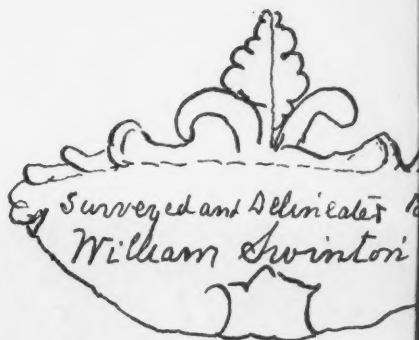 Surveyed and Delineated
William Swinton